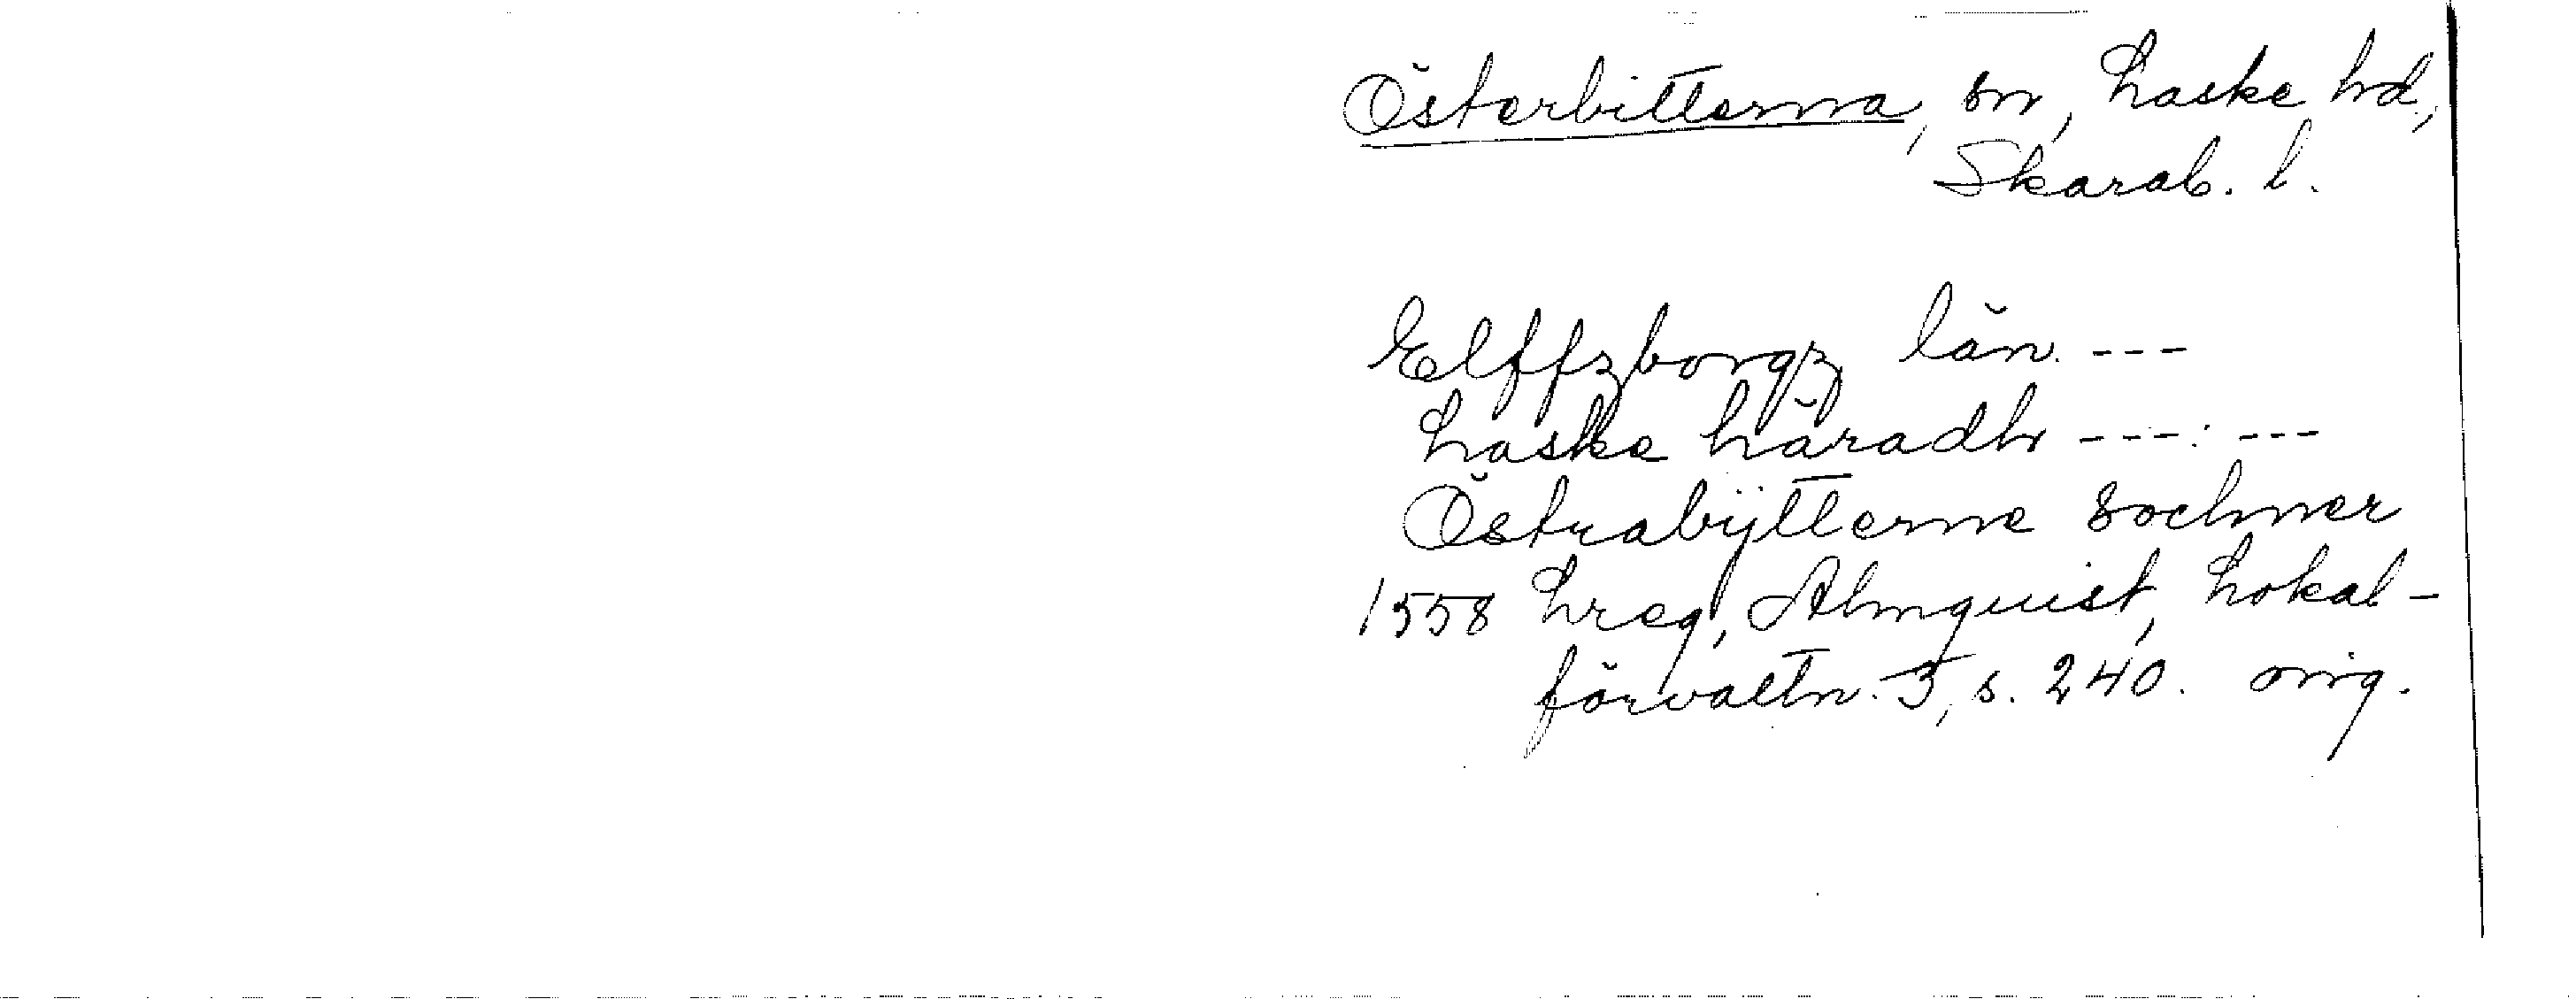 Österbitterna, sn, Laske hd,
Skarab. l.
Elffzborgz län. ---
Laske häradh ---:---
Östrabÿtterne sochner
1558 Lreg, Almquist, Lokal-
förvaltn. 3, s. 240. orig.